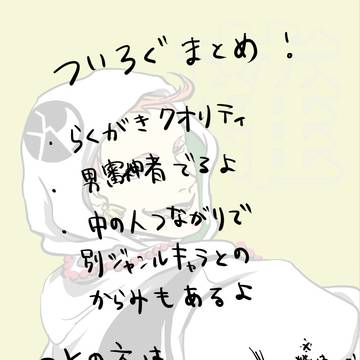 ついろぐまとめ!
・らくがきクオリティ
・男審神者でるよ
・中の人つながりで
別ジャンルキャラとの
からみもあるよ